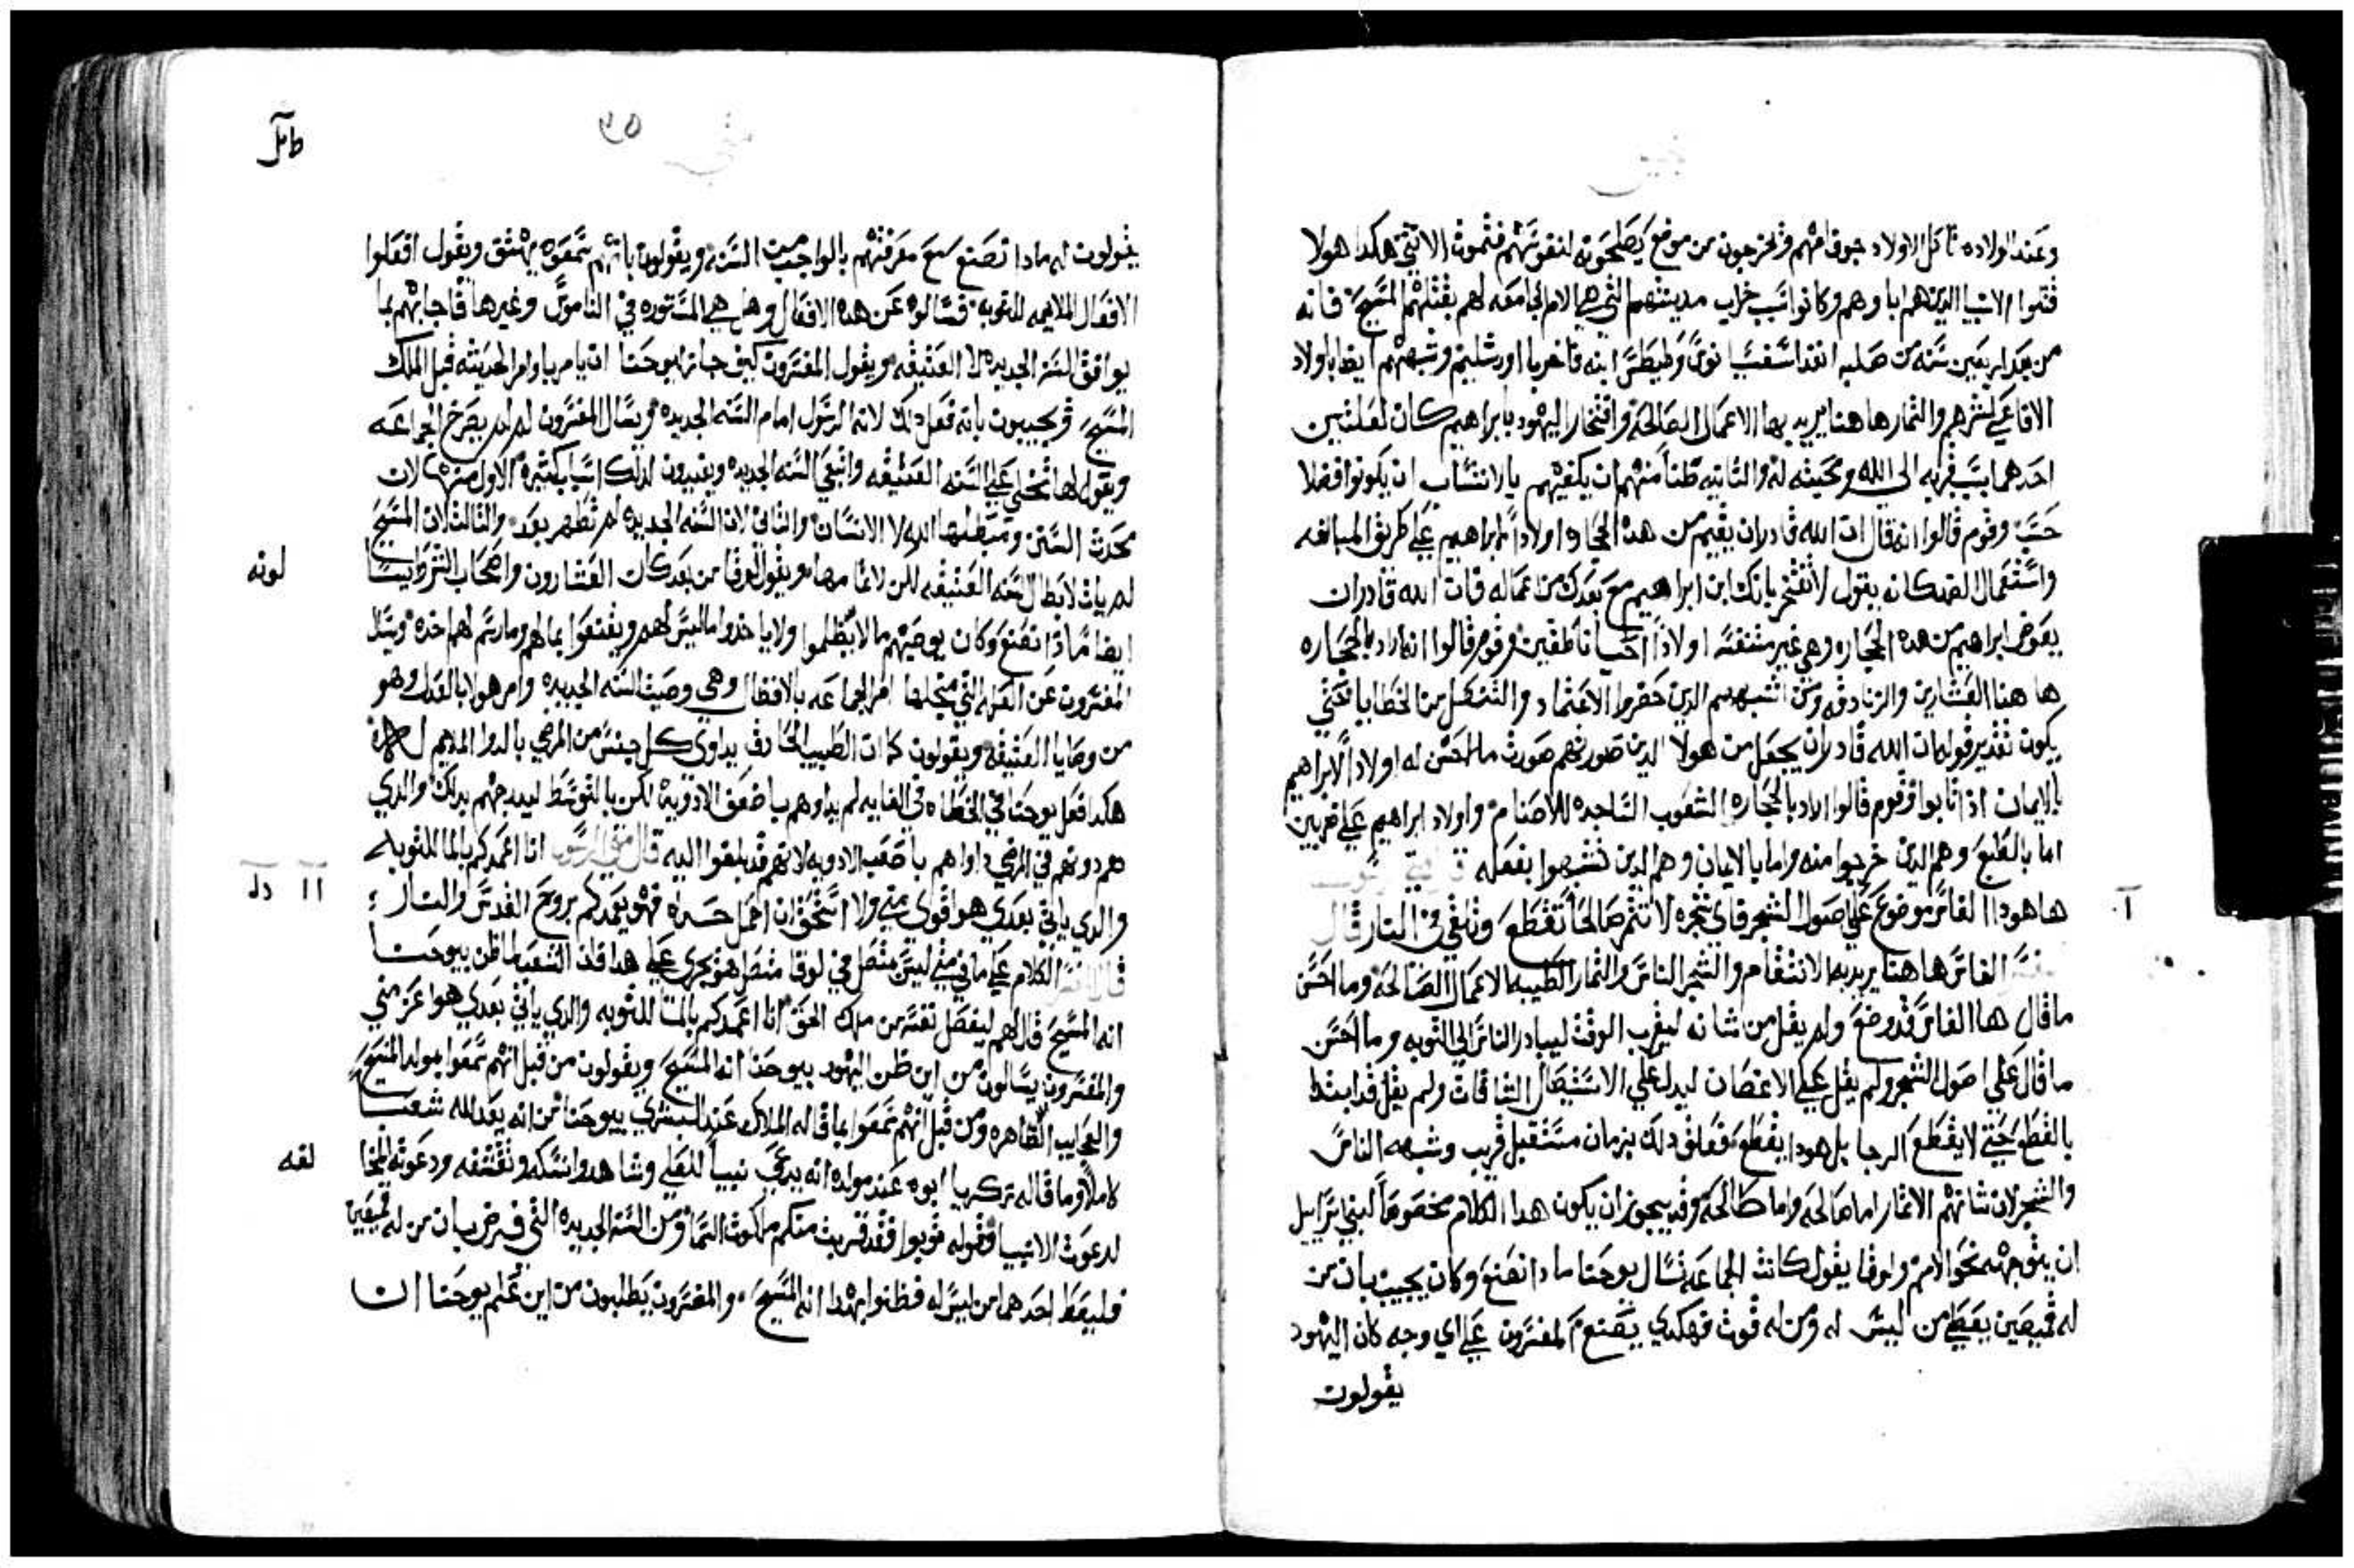 وعند الولاده تاكل الاولاد جوف امهم وتخرجون من موضع يصلحونه لنفوسهم فتموت الانثي هكدا هولا
قتلوا الانبيا الدين هم اباوهم وكانوا سبب خراب مدينتهم التي هي الام الجامعه لهم بقتلهم المسيح فانه
من بعد اربعين سنه من صلبه انفد اسفسيانوس وطيطس ابنه فاخربا اورشليم وشبههم ايضا باولاد
الافاعي لشرهم والثمار هاهنا يريد بها الاعمال الصالحه وافتخار اليهود بابراهيم كان لعلتين
احدهما بسبب قربه الى الله ومحبته له والثانيه ظنا منهم ان يكفيهم بالانتساب ان يكونوا فضلا
حسب وقوم قالوا انه قال ان الله قادر ان يقيم من هده الحجاره اولادا لابراهيم علي طريق المبالغه
واستعمال الضد كانه يقول لا تفتخر بانك ابن ابراهيم مع بعدك من اعماله فان الله قادر ان
يعوض ابراهيم من هده الحجاره وهي غير متنفسه اولادا احيا ناطقين وقوم قالوا انه اراد بالحجاره
ها هنا العشارين والزنادقه ومن اشبههم الدين حضروا الاعتماد والتنصل من الخطايا فحتي
يكون تقدير قوله ان الله قادر ان يجعل من هولا الدين صورتهم صورت مالا حس له اولادا لابراهيم
بالايمان ادا تابوا وقوم قالوا اراد بالحجاره الشعوب الساجده للاصنام واولاد ابراهيم علي ضربين
اما بالطبع وهم الدين خرجوا منه واما بالايمان وهم الدين تشبهوا بفعله قال متي الرسول
ها هودا الفاس موضوع علي اصول الشجر فاي شجره لا تثمر صالحا تقطع وتلقي في النار قال
المفسر الفاس هاهنا يريد به الانتقام والشجر الناس والثمار الطيبه الاعمال الصالحه وما احسن
ما قال ها الفاس قد وضع ولم يقل من شانه ليقرب الوقت ليبادر الناس الي التوبه وما احسن
ما قال علي اصول الشجر ولم يقل علي الاغصان ليدل علي الاستيصال الشافات ولم يقل قد ابتدا
بالقطع حتي لا يقطع الرجا بل هودا يقطع فعلق دلك بزمان مستقبل قريب وشبهه الناس
والشجر لان شانهم الاثمار اما صالحه واما طالحه وقد يجوز ان يكون هدا الكلام مخصوصا لبني اسراييل
ان يتوجه نحو الامم ولوقا يقول كانت الجماعه تسال يوحنا مادا نصنع وكان يجيب بان من
له قميصين يعطي من ليس له ومن له قوت فهكدي يصنع المفسرون علي اي وجه كان اليهود
يقولون
طامل
يقولون له مادا نصنع مع معرفتهم بالواجب من السنه ويقولون بانهم سمعوه يهتف ويقول افعلوا
الافعال الملايمه للتوبه فسالوه عن هده الافعال وهل هي المستوره في الناموس وغيرها فاجابهم بما
يوافق السنه الجديده لا العتيقه ويقول المفسرون كيف جاز ليوحنا ان يامر باوامر الحديثه قبل الملك
المسيح ويجيبون بانه فعل دلك لانه الرسول امام السنه الجديده ويسال المفسرون لم لم يصرخ الجماعه
ويقول لها تخلي علي السنه العتيقه واتبعي السنه الجديده ويفيدون لدلك اسباب كثيره الاول منها لان
محدث السنن ومبطلها الله لا الانسان والثاني لان السنه الجديده لم تظهر بعد والثالث لان المسيح
لم يات لابطال السنه العتيقه لكن لاتمامها ويقول لوقا من بعد كان العشارون واصحاب الشرط ايضا
لونه
ايضا مادا نصنع وكان يوصيهم ما لا يظلموا ولا ياخدوا ما ليس لهم ويقنعوا بما لهم وما رسم لهم اخده ويسل
المفسرون عن العله التي من اجلها امر الجماعه بالافضال وهي وصيه السنه الجديده وامر هولا بالعدل وهو
من وصايا العتيقه ويقولون كما ان الطبيب الحادق يداوي كل جنس من المرضي بالدوا الملايم
هكدا فعل يوحنا في الخطاه في الغايه لم يداوهم باضعف الادويه لكن بالتوسط ليدرجهم بدلك والدي
هم دونهم في المرض داواهم باصعب الادويه لانهم قد بلغوا اليه قال متي الرسول انا اعمدكم بالما للتوبه
والدي ياتي بعدي هو اقوي مني ولا استحق ان احمل حداه فهو يعمدكم بروح القدس والنار
قال المفسر الكلام علي ما في متي ليس متصل في لوقا متصل هو يجري علي هدا فلان الشعب لما ظن بيوحنا
انه المسيح قال لهم ليفصل نفسه من ملك الحق انا اعمدكم بالما للتوبه والدي ياتي بعدي هو اعز مني
والمفسرون يسالون من اين ظن اليهود بيوحنا انه المسيح ويقولون من قبل انهم سمعوا بمولد المسيح
والعجايب الظاهره ومن قبل انهم سمعوا بما قاله الملاك عند البشري بيوحنا من انه يعد لله شعبا
كاملا وما قاله زكريا ابوه عند مولده انه يدعي نبيا للعلي وشاهدوا نسكه وتقشفه ودعوته المخا
لفه
لدعوت الانبيا وقوله توبوا فقد قربت منكم ملكوت السما ومن السنه الجديده التي فرض بان من له قميصين
فليعط احدهما من ليس له فظنوا بهدا انه المسيح والمفسرون يطلبون من اين علم يوحنا ان